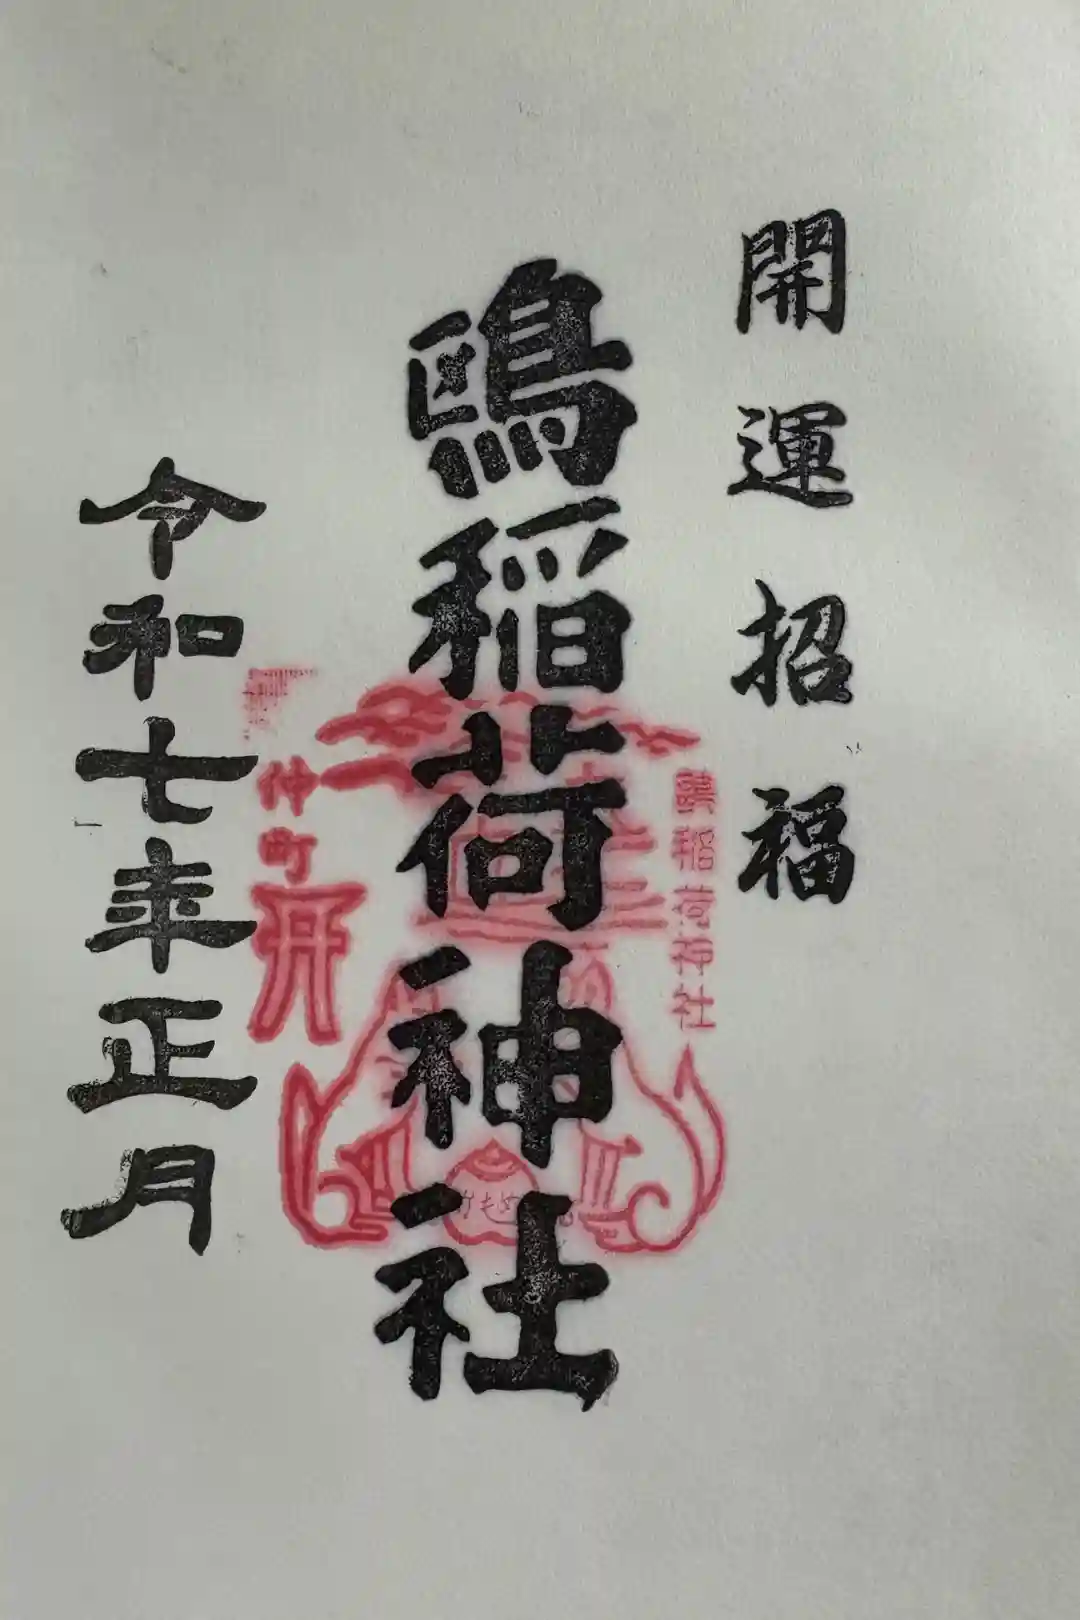 開運招福
稲荷神社
鴎稲荷神社
仲町
令和七年正月